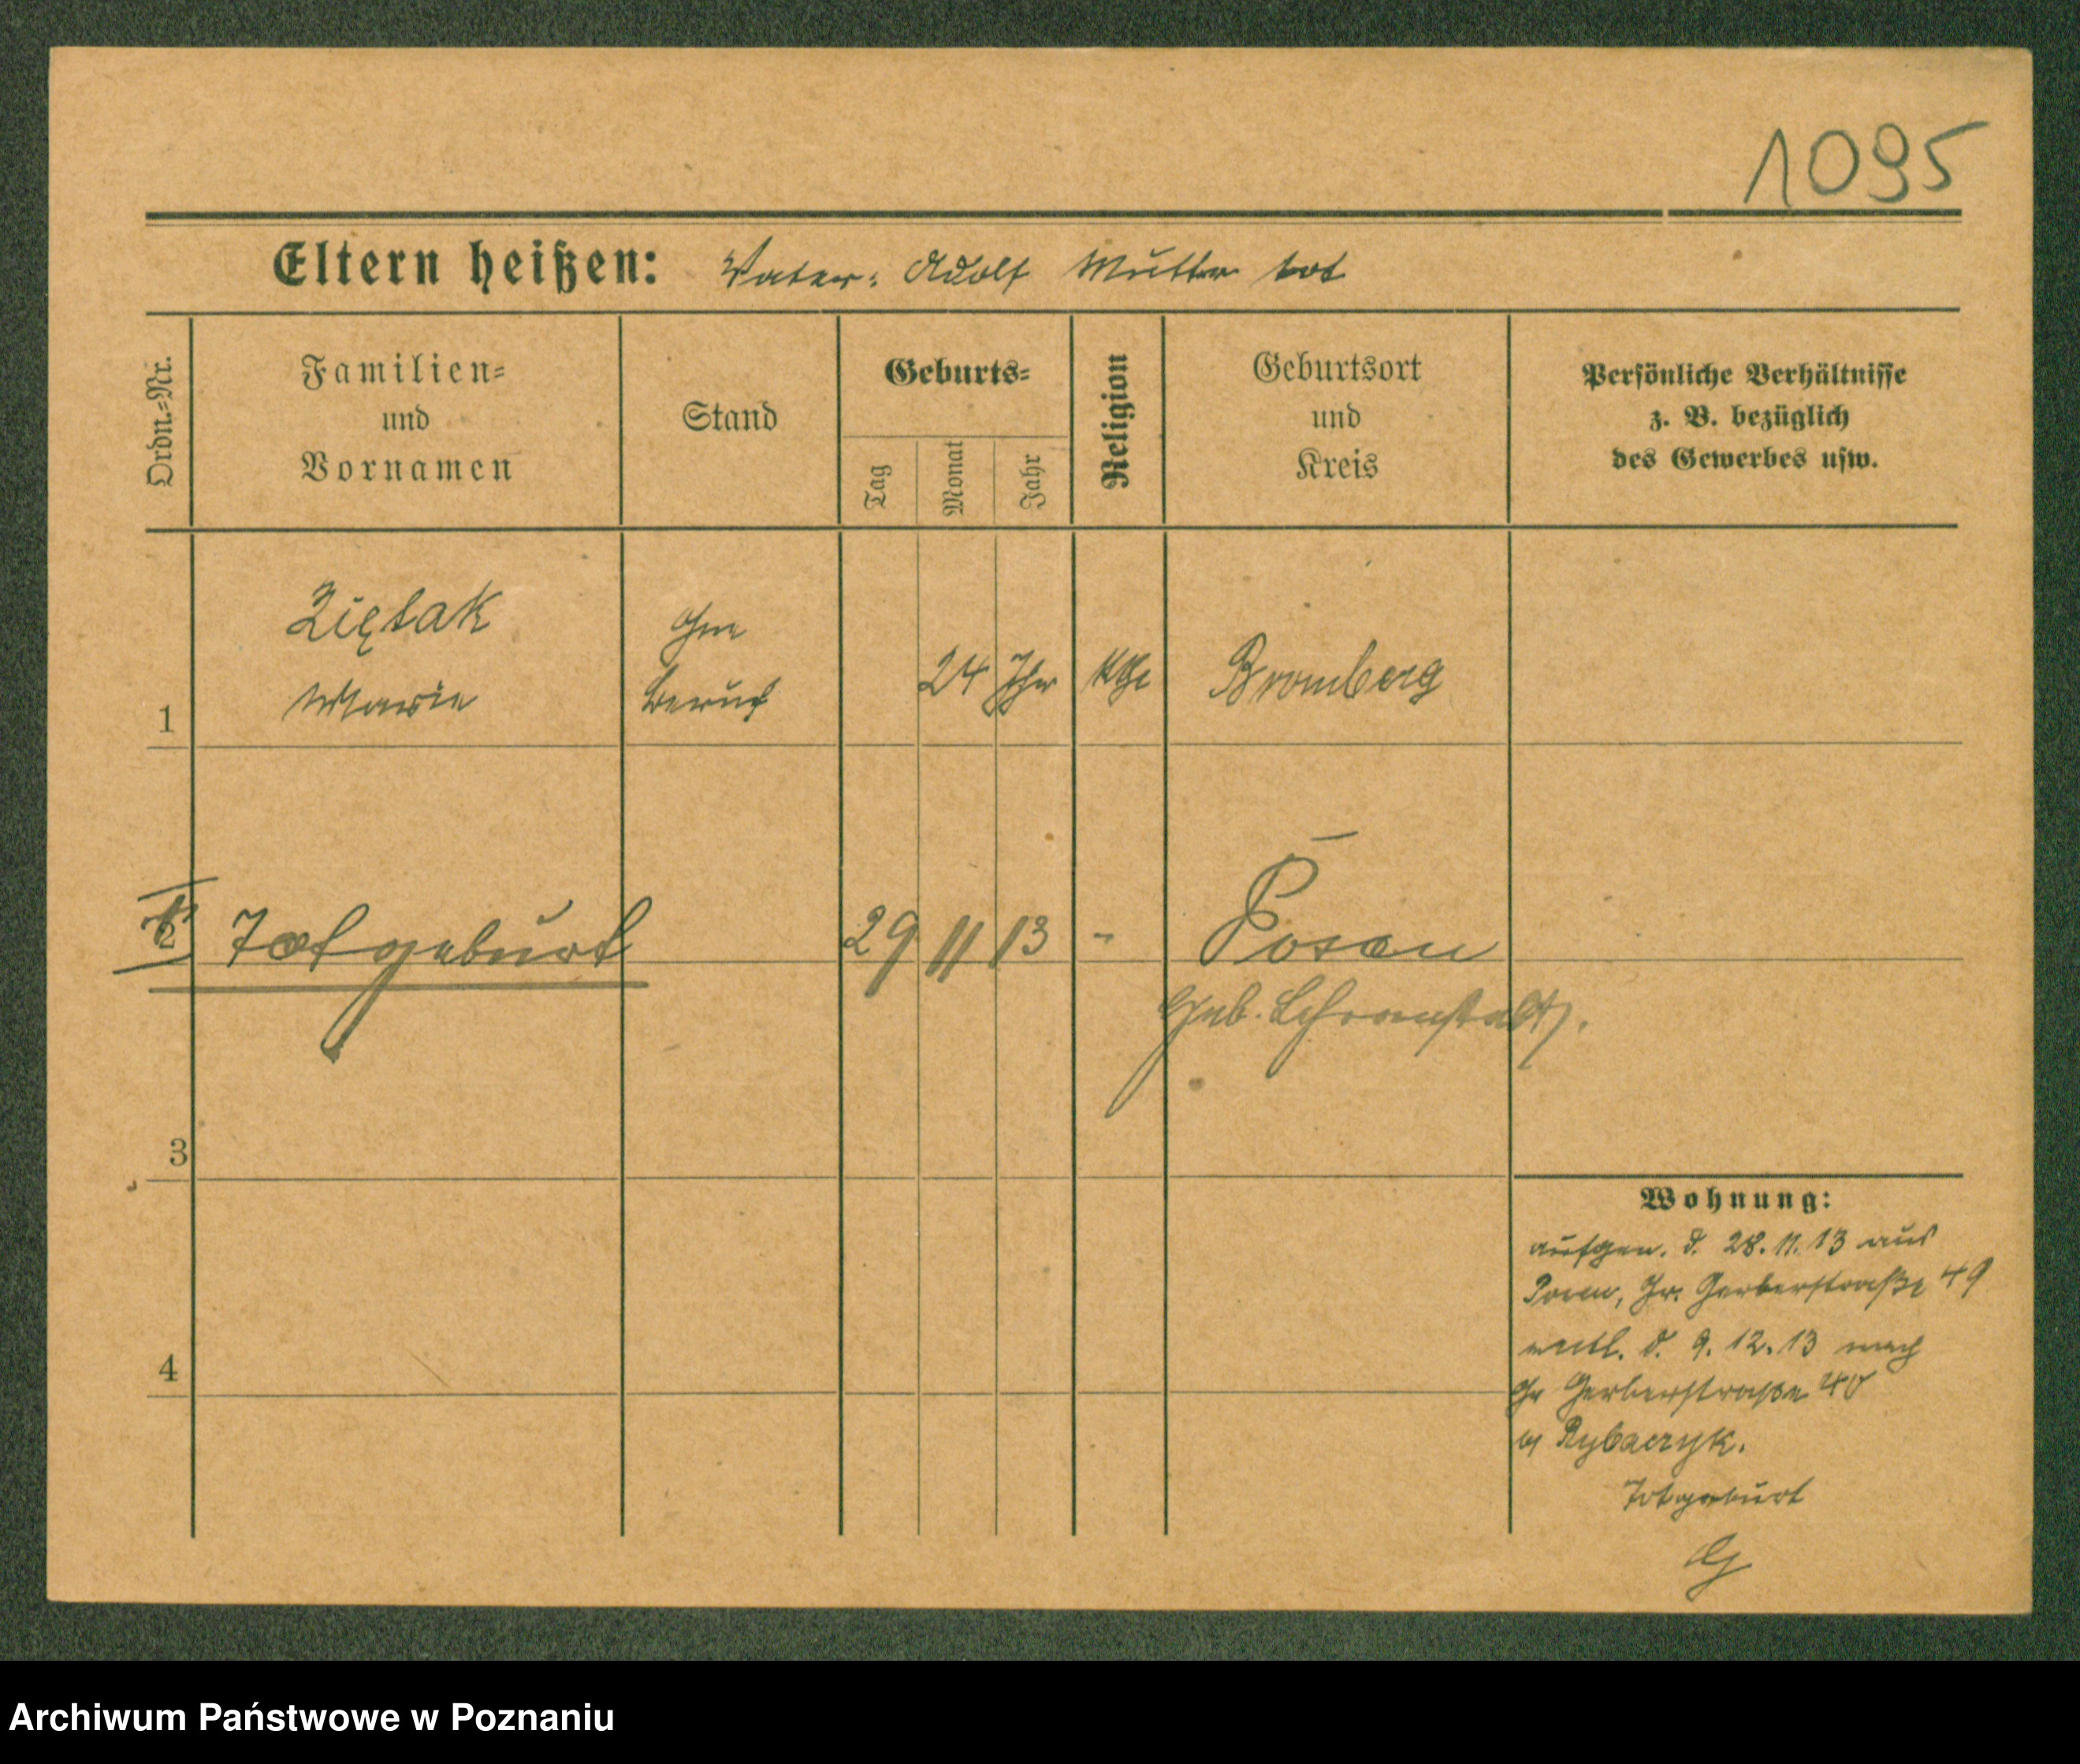 1095
Eltern heißen: Vater: Adolf Mutter tot
Ordn.-Nr.
Familien-
und
Vornamen
Stand
Geburts-
Tag
Monat
Jahr
Religion
Geburtsort
und
Kreis
Persönliche Verhältnisse
z. B. bezüglich
des Gewerbes usw.
1
Ziętak
Marie
Beruf
24 Jhr
Bromberg
2
Totgeburt
29 11 13 - Posen
Geb. Lehranstalt.
3
4
Wohnung:
aufgen. d. 28.11.13 aus
Posen, Gr. Gerberstraße 49
entl. d. 9.12.13 nach
Gr Gerberstraße 40
b/ Rybaczyk.
Totgeburt
Archiwum Państwowe w Poznaniu